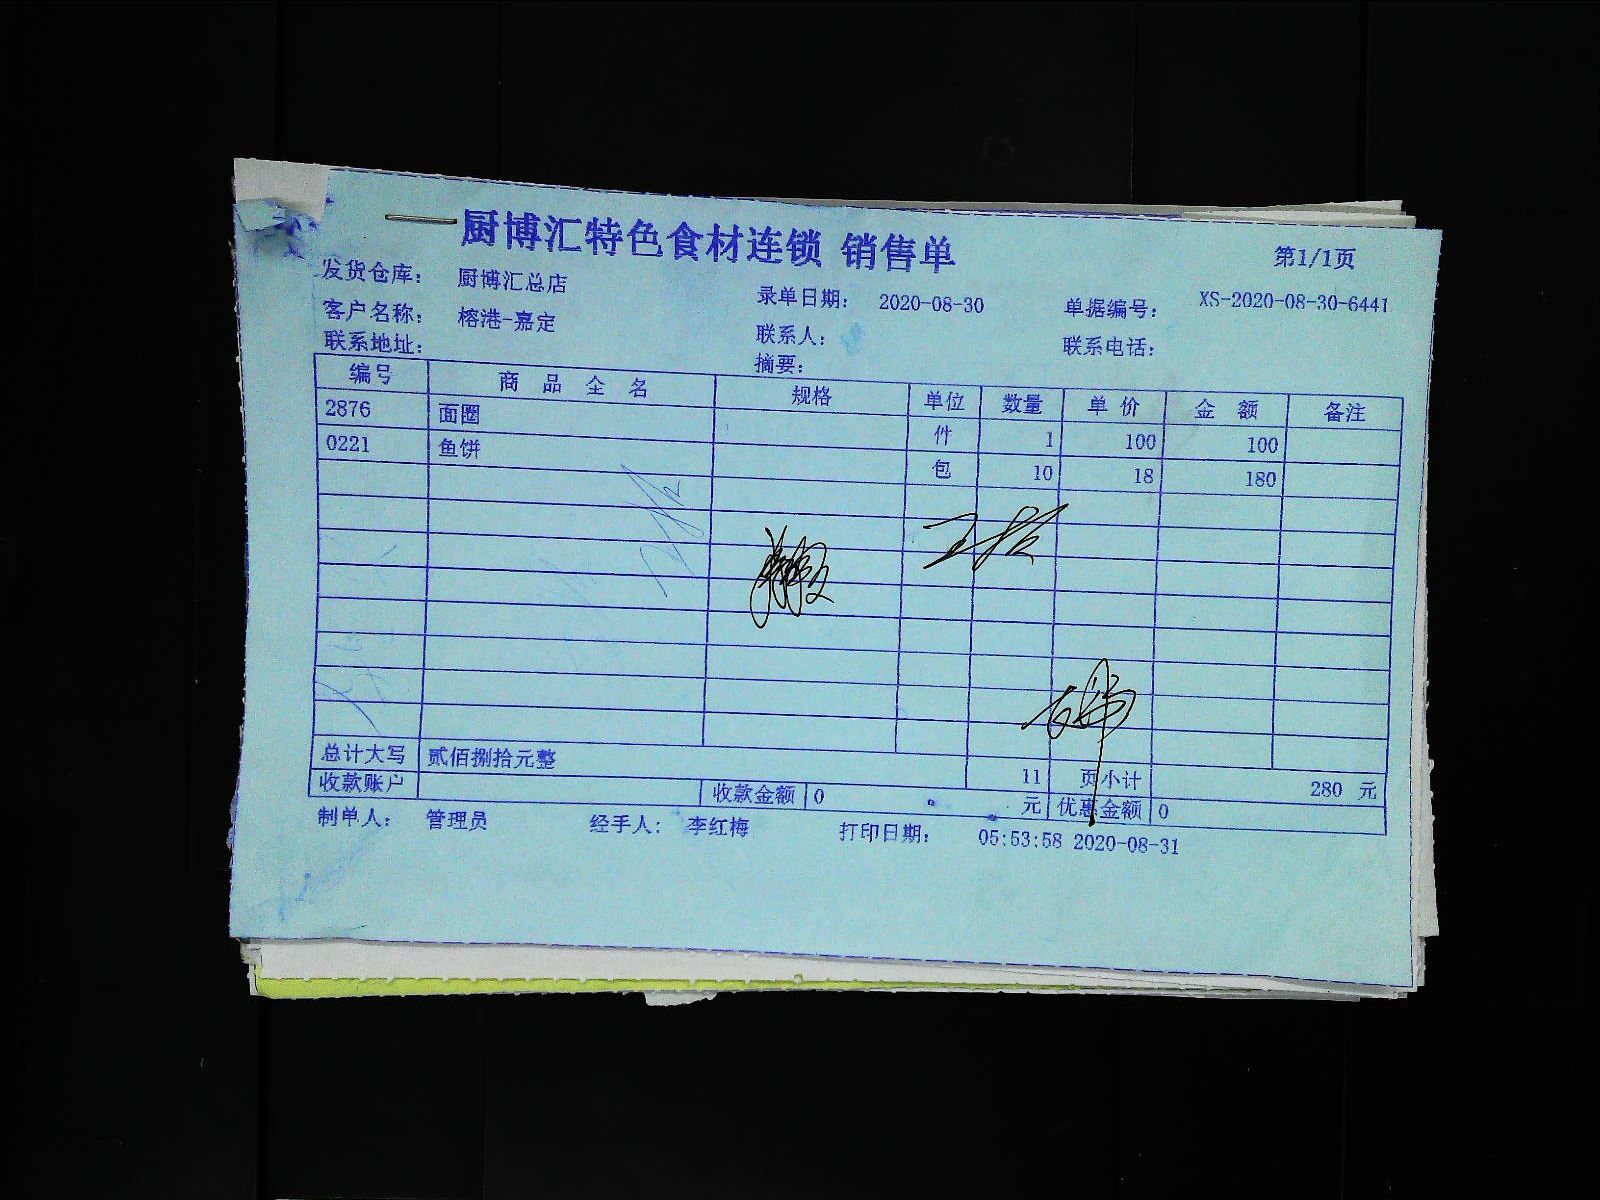 厨博汇特色食材连锁 销售单
第1/1页
发货仓库: 厨博汇总店 录单日期: 2020-08-30 单据编号: XS-2020-08-30-6441
客户名称: 榕港-嘉定 联系人: 联系电话:
联系地址: 摘要:
编号 商品全名 规格 单位 数量 单价 金额 备注
2876 面圈 件 1 100 100
0221 鱼饼 包 10 18 180
总计大写 贰佰捌拾元整 11 页小计 280 元
收款账户 收款金额 0 元 优惠金额 0
制单人: 管理员 经手人: 李红梅 打印日期: 05:53:58 2020-08-31